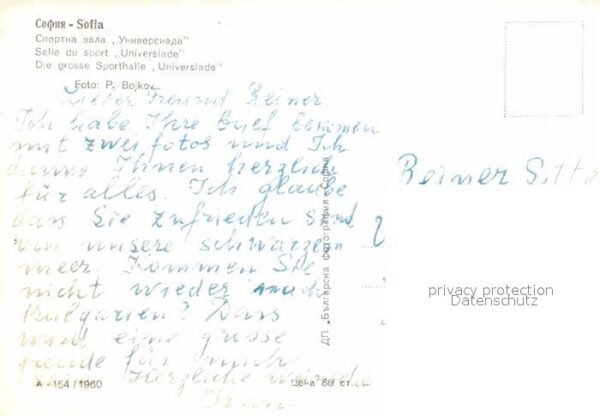 София - Sofia
Спортна зала „Универсиада"
Salle du sport „Universiade"
Die grosse Sporthalle „Universiade"
Foto: P. Bojkov
Lieber Freund Reiner
Ich habe Ihre Brief
mit zwei fotos und Ich
Ihnen herzlich
für alles. Ich glaube
dass Sie zufrieden sind
von unsere schwarzem
meer. Kommen Sie
nicht wieder nach
Bulgarien? Dass
wird eine grosse
freude für mich
Herzliche
Ivan
A - 154 / 1960
ДП „Българска фотография" - София
Цена 80 ст.
Reiner Sitte
privacy protection
Datenschutz